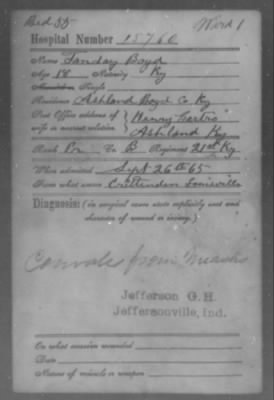 Bed 55 Ward 1
Hospital Number 15760
Name Sanday Boyd
Age 18 Nativity Ky
Married or Single
Residence Ashland Boyd Co. Ky
Post Office address of Henry
wife or nearest relation Ashland Ky
Rank Pr. Co B Regiment 21st Ky
When admitted Sept 26th 65
From what source Crittenden Louisville
Diagnosis: (in surgical cases state explicitly seat and
character of wound or injury.)
Convales from Measles
Jefferson G. H.
Jeffersonville, Ind.
On what occasion wounded
Date
Nature of missile or weapon